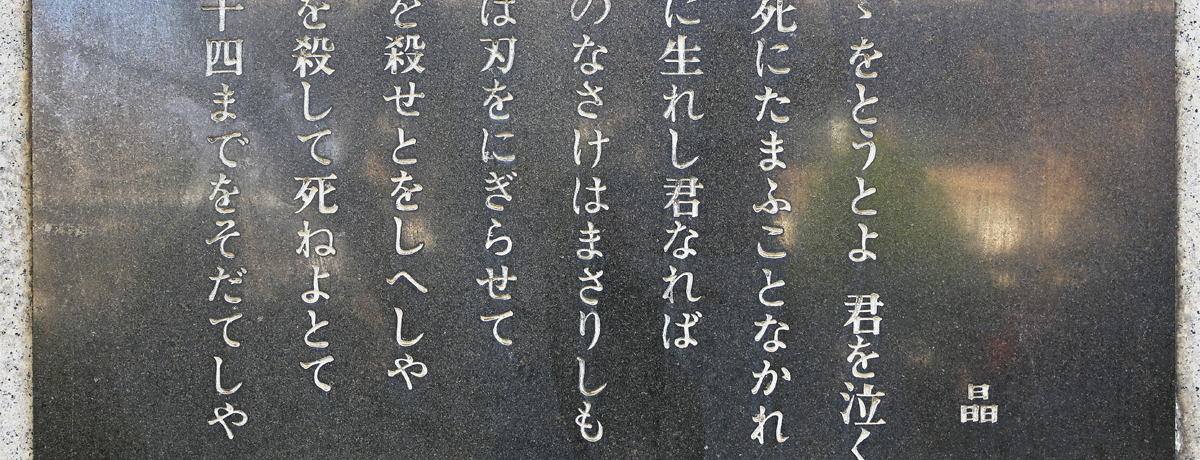 晶
ゝをとうとよ 君を泣く
死にたまふことなかれ
に生れし君なれば
のなさけはまさりしも
は刃をにぎらせて
を殺せとをしへしや
を殺して死ねよとて
十四までをそだてしや